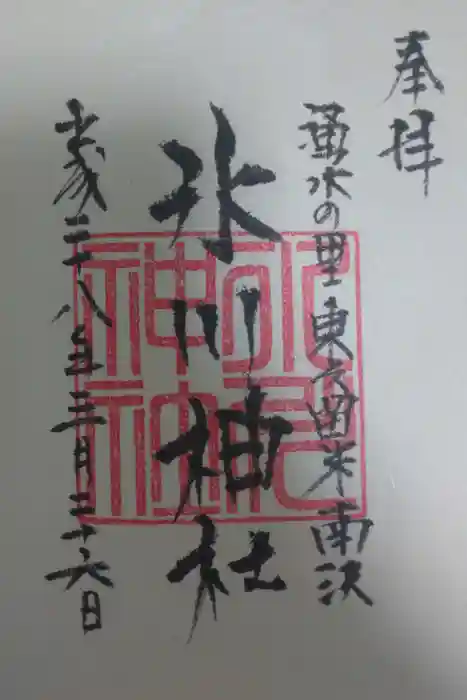 奉拝
湧水の里東久留米南沢
氷川神社
氷川神社
平成二十八年三月二十六日